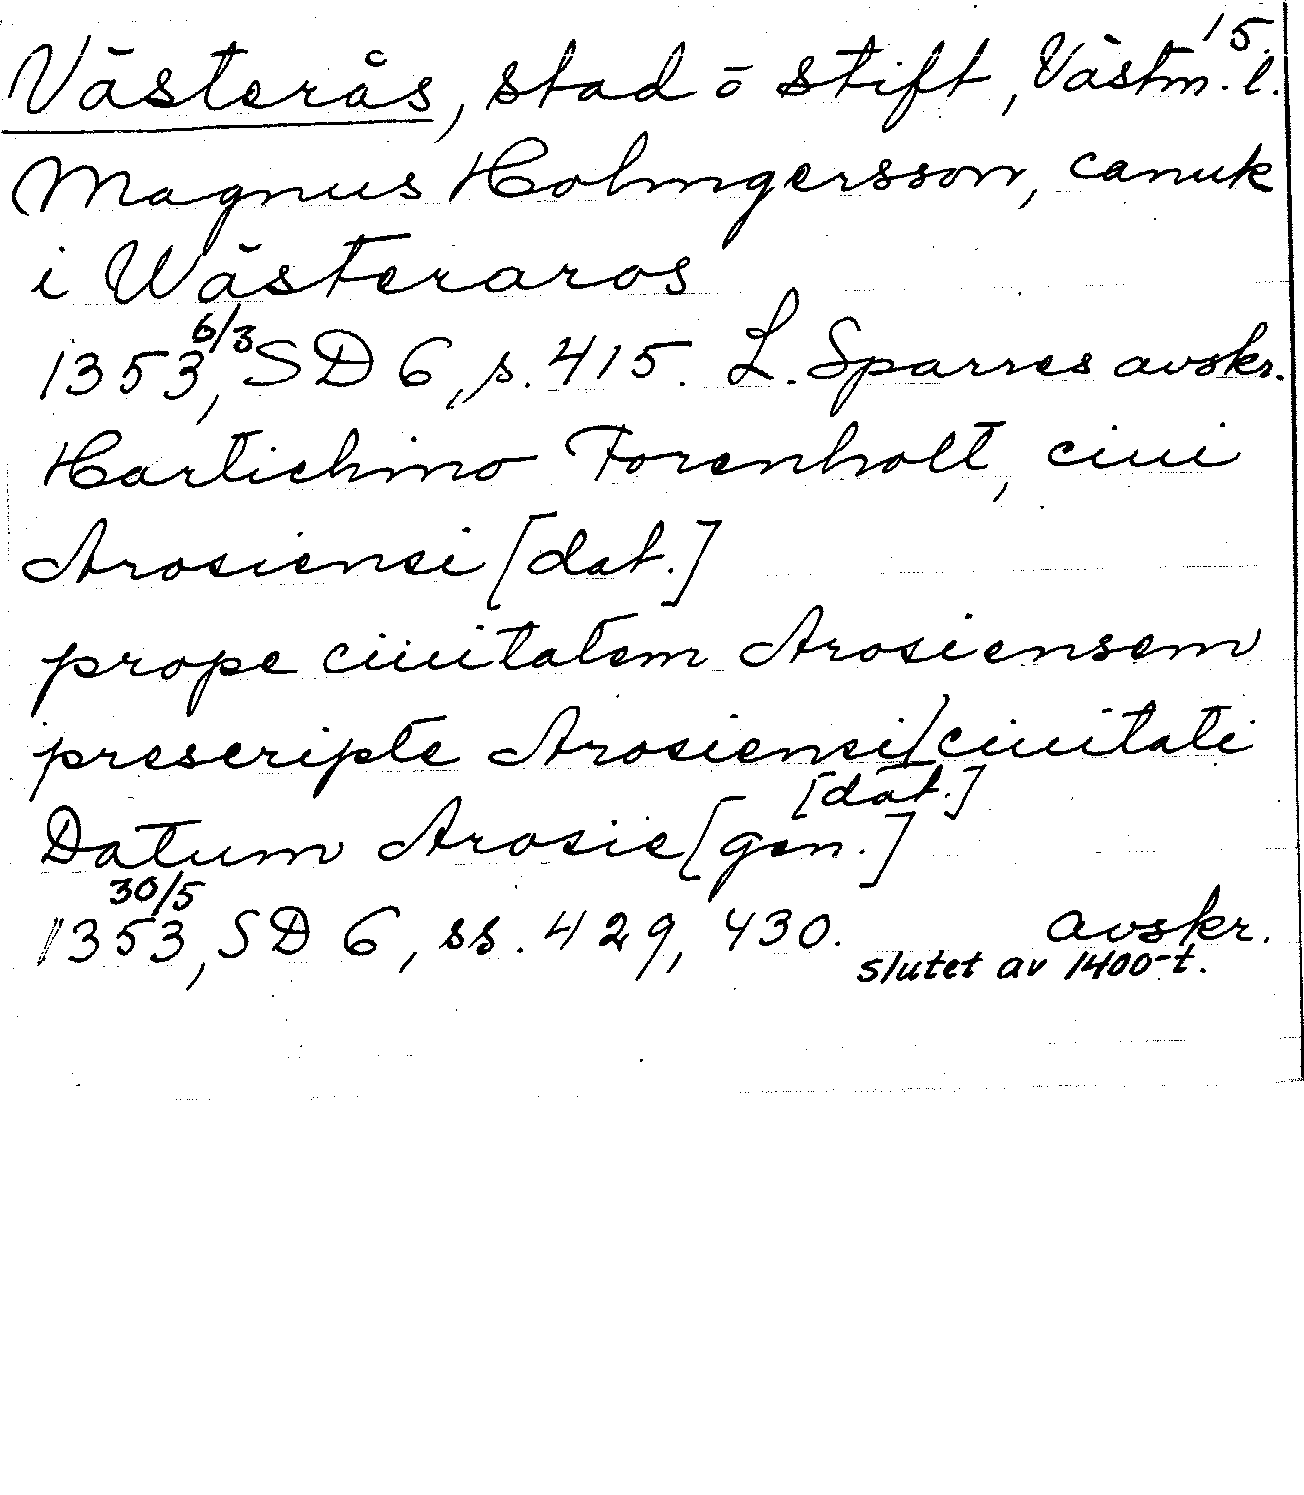 15.
Västerås, stad o stift, Västm. l.
Magnus Holmgersson, canuk
i Wästeraros
1353 6/3, SD 6, s. 415. L. Sparres avskr.
Hartichmo Forenholt, ciui
Arosiensi [dat.]
prope ciuitatem Arosiensem
prescripte Arosiensi/ciuitati
[dat.]
Datum Arosie [gen.]
1353 30/5, SD 6, ss. 429, 430. avskr.
slutet av 1400-t.